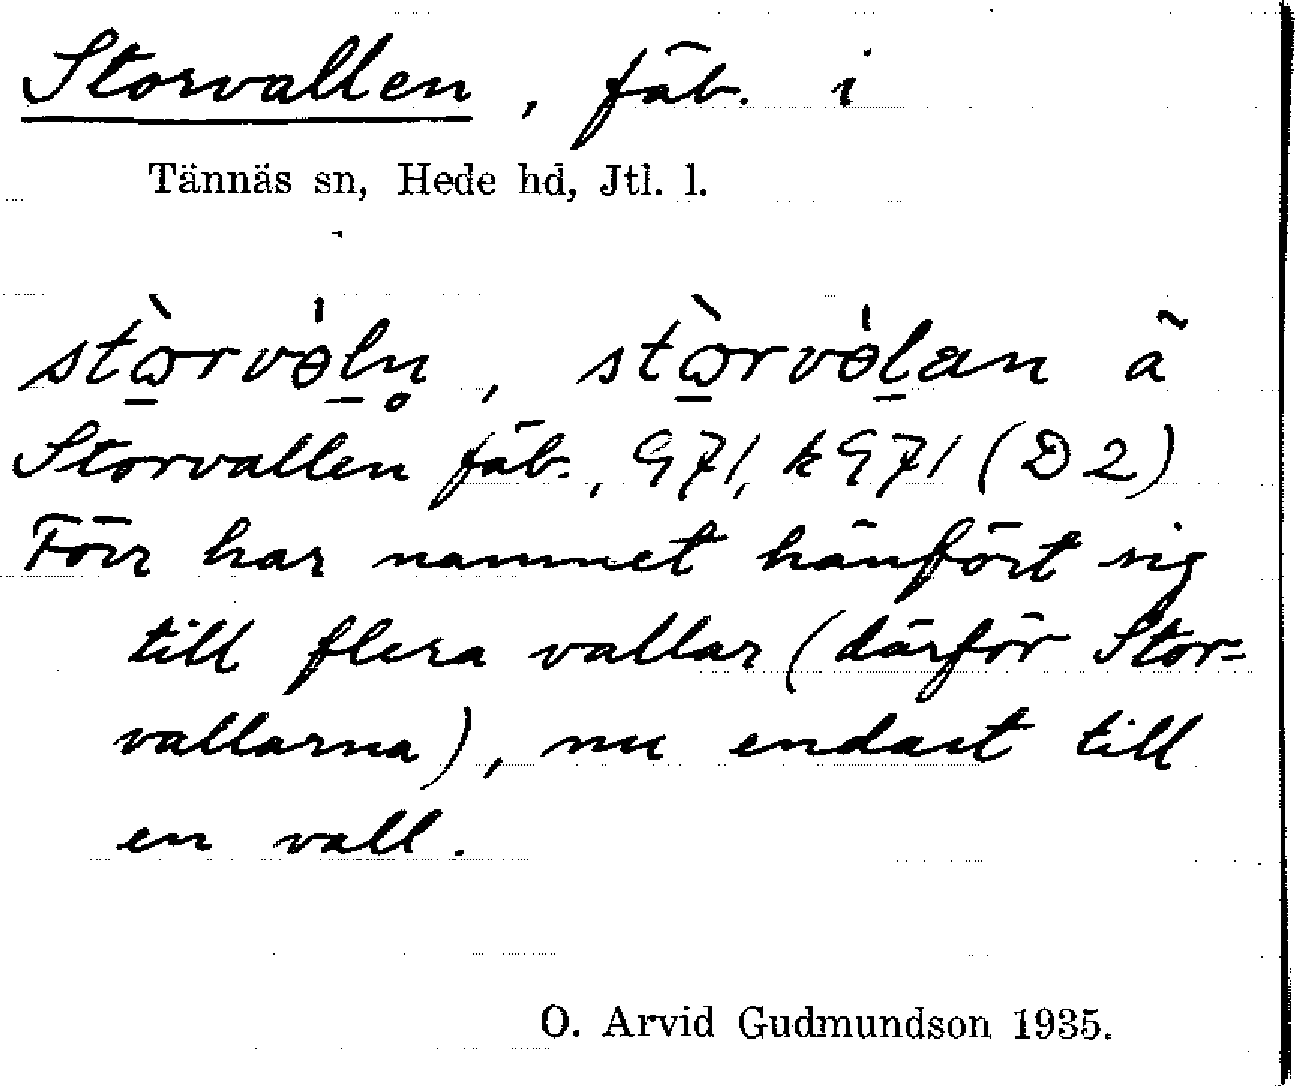 Storvallen, fäb. i
Tännäs sn, Hede hd, Jtl. l.
Storvallen fäb., G71, kG71 (D2)
Förr har namnet hänfört sig
till flera vallar (därför Stor=
vallarna), nu endast till
en vall.
O. Arvid Gudmundson 1935.